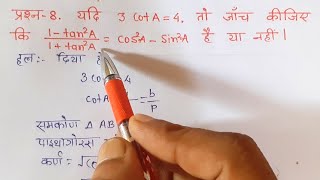 प्रश्न-8. यदि 3 cotA = 4, तो जाँच कीजिए
कि (1 - tan²A)/(1 + tan²A) = cos²A - sin²A है या नहीं।
हल:- दिया है
3 cotA 4
cotA = b/P
समकोण Δ AB
पाइथागोरस
कर्ण = √(